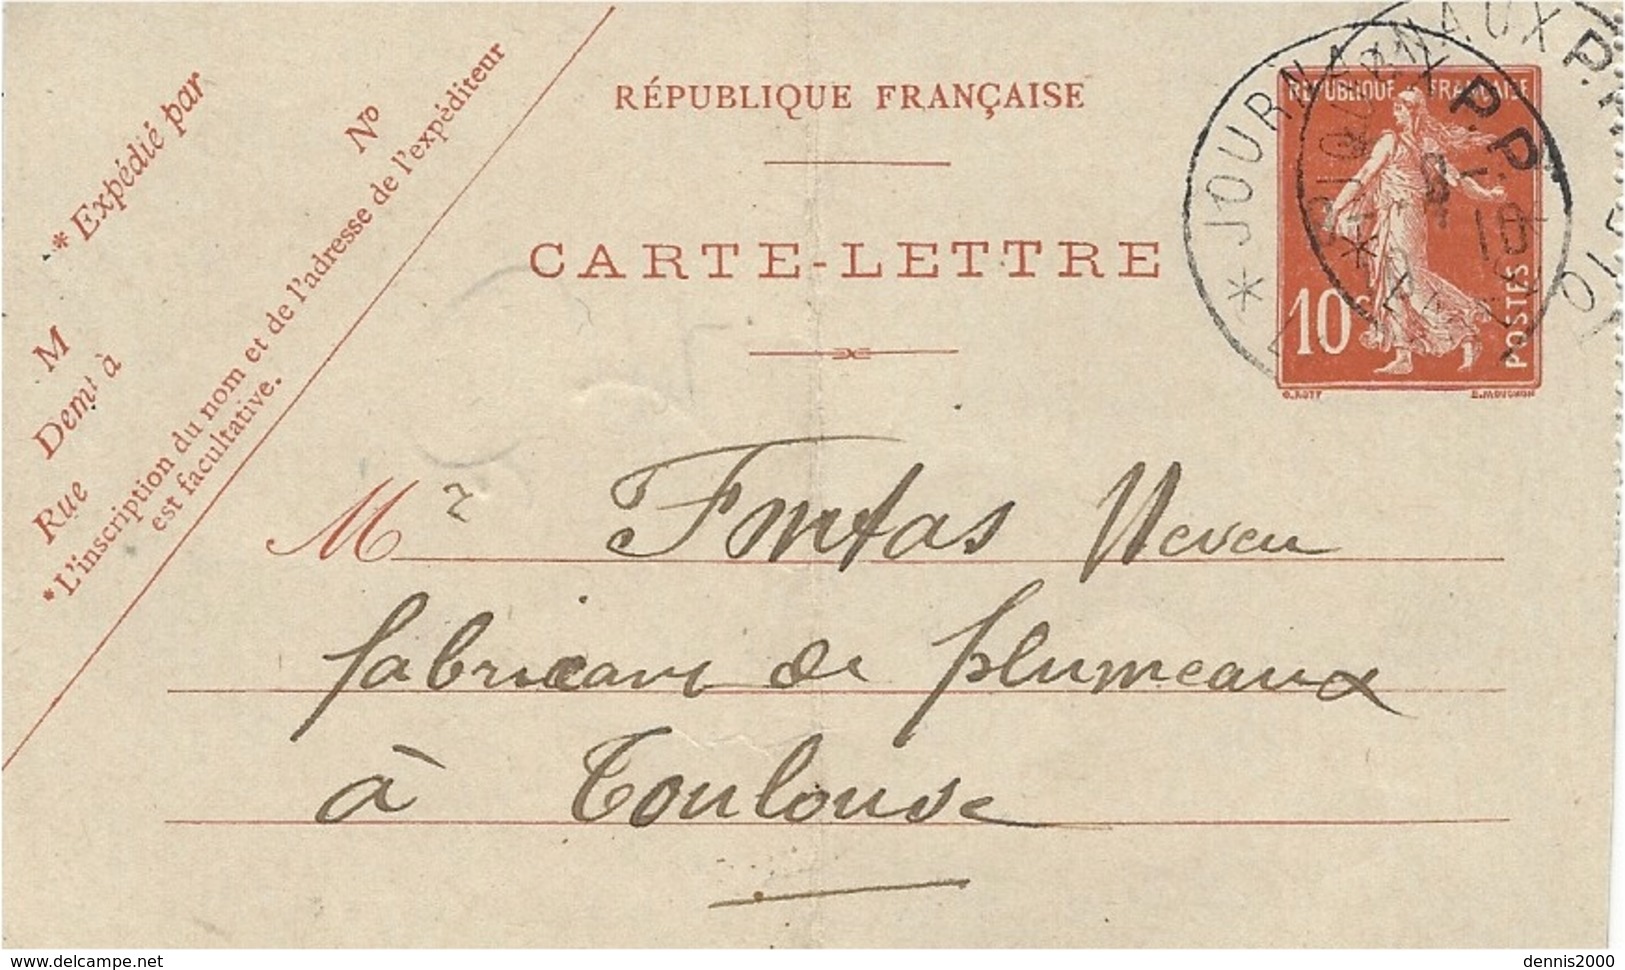 RÉPUBLIQUE FRANÇAISE
CARTE-LETTRE
* Expédié par
Nº
M
Demt à
Rue
*L'inscription du nom et de l'adresse de l'expéditeur
est facultative.
* JOURNAUX P.P.
* JOURNAUX P.P.
RÉPUBLIQUE FRANÇAISE
10c
POSTES
O. ROTY E. MOUCHON
Mr Fontas Neveu
fabricant de plumeaux
à Toulouse
delcampe.net
dennis2000